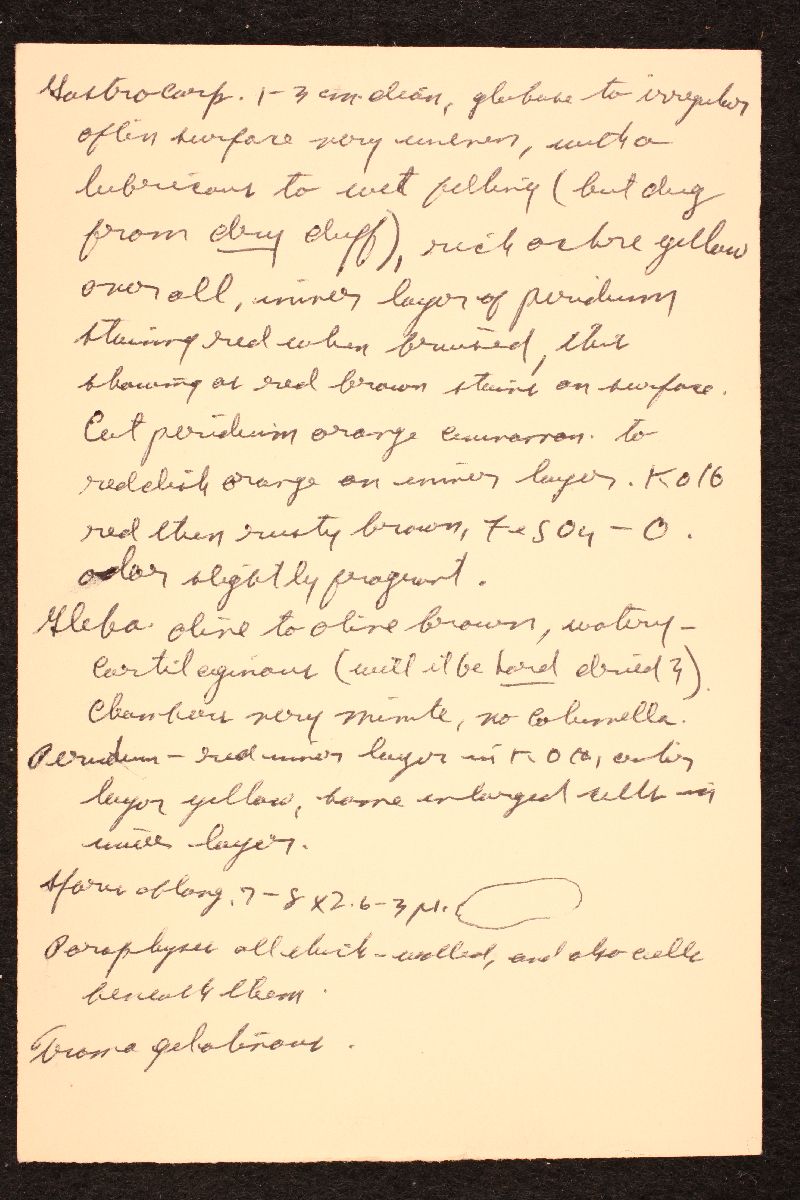 Gastrocarp. 1-3 cm. diam, globose to irregular
often surface very uneven, with a
lubricous to wet felling (but dug
from dry duff), rich ochre yellow
over all, inner layer of peridium
staining red when bruised, this
showing as red brown stains on surface.
Cut peridium orange cinnamon. to
reddish orange on inner layer. KOH
red then rusty brown, FeSO4 - O.
odor slightly fragrant.
Gleba. olive to olive brown, watery-
cartilaginous (will it be hard dried?).
Chambers very minute, no columella.
Peridium - red inner layer in KOH, outer
layer yellow, some enlarged cells in
inner layer.
Spores oblong, 7-8 x 2.6-3 µ.
Paraphyses all thick-walled, and also cells
beneath them.
Trama gelatinous.